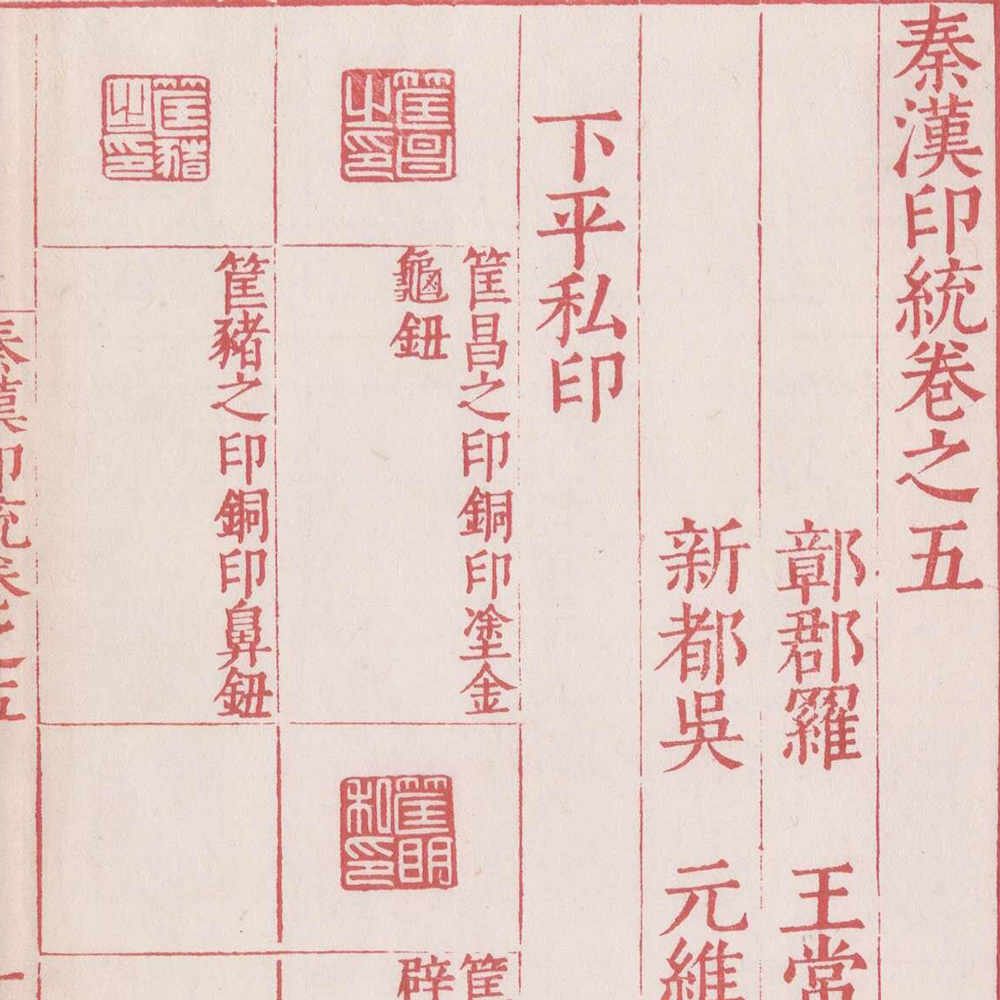 秦漢印統卷之五
鄣郡羅 王常
新都吳 元維
下平私印
筐昌之印
筐昌之印銅印塗金
龜鈕
筐明私印
筐
辟
筐豬之印
筐豬之印銅印鼻鈕
秦漢印統卷之五